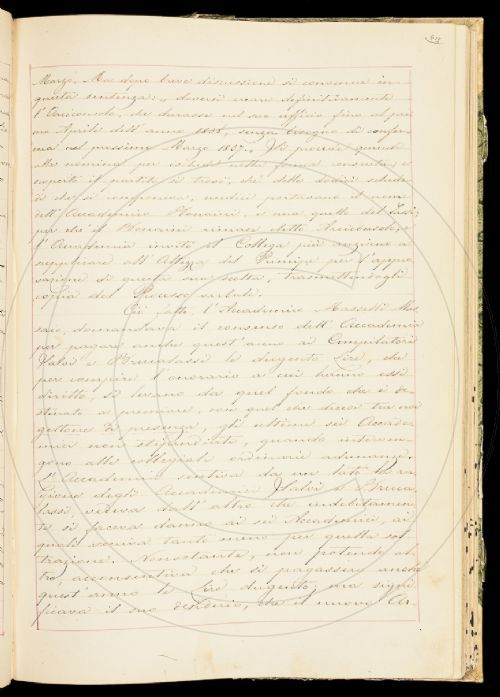 Marzo. Ma dopo breve discussione si convenne in
questa sentenza: doversi creare definitivamente
l'Arciconsolo, che durasse nel suo ufficio fino al pri
mo Aprile dell'anno 1858, senza bisogno di confer
ma nel prossimo Marzo 1857. Si procede quindi
alla nomina per schede nella forma consueta; e
aperto il partito si trovò, che delle dodici schede
di che si componeva, undici portavano il nome
dell'Accademico Bonaini, e una quello del
per che il Bonaini rimase eletto Arciconsolo; e
l'Accademia invitò il Collega più anziano a
supplicare all'Altezza del Principe per l'appro
vazione di questa sua scelta, trasmettendogli
copia del Processo verbale.
Ciò fatto, l'Accademico Masselli Mas
saio, domandava il consenso dell'Accademia
per pagare anche quest'anno ai Compilatori
Salvi e Brucalassi le dugento Lire, che
per compire l'onorario a cui hanno essi
diritto, si levano da quel fondo che è de
stinato a premiare, con quel che dicesi
gettone di presenza, gli ultimi sei Accade
mici non stipendiati, quando interven
gono alle collegiali ordinarie adunanze.
L'Accademia sentiva da un lato la ra
gione degli Accademici Salvi e Bruca
lassi, vedeva dall'altro che indebitamen
te si faceva danno ai sei Accademici, ai
quali veniva tanto meno per quella sot
trazione. Nonostante, non potendo al
tro, acconsentiva che si pagassero anche
quest'anno le Lire dugento, ma signi
ficava il suo desiderio, che il nuovo Ar-